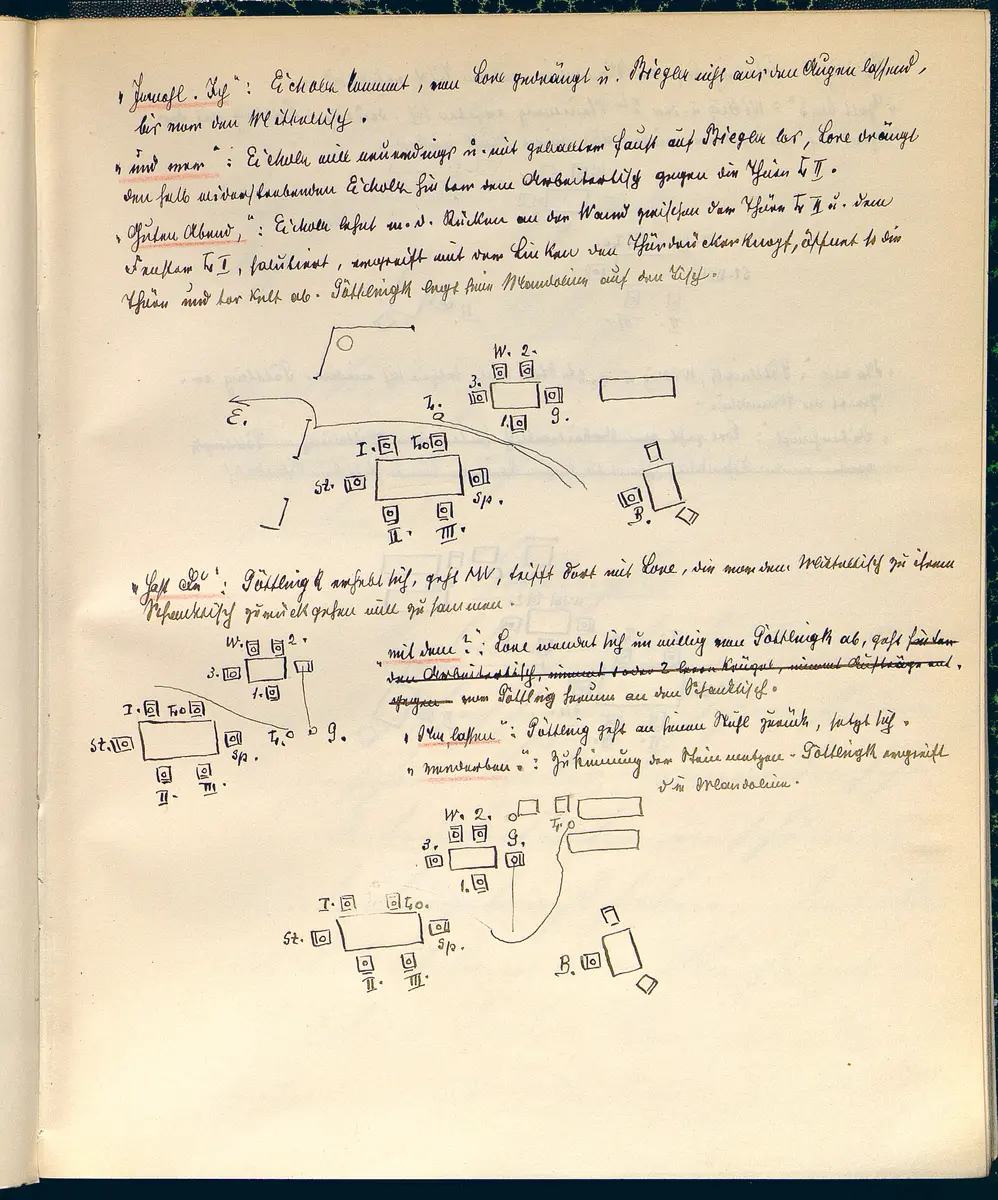 „Jawohl. Ich“: Eicholz kommt, von Lore gedrängt u. Biegler nicht aus den Augen lassend,
bis vor den Mitteltisch.
„und wer“: Eicholz will neuerdings u. mit geballter Faust auf Biegler los, Lore drängt
den halb widerstrebenden Eicholz hinter dem Arbeitertisch gegen die Thüre L II.
„Guten Abend,“: Eicholz lehnt m. d. Rücken an der Wand zwischen der Thüre L II u. dem
Fenster L I, salutiert, ergreift mit der Linken den Thürdrückerknopf, öffnet so die
Thüre und torkelt ab. Göttlingk legt seine Mandoline auf den Tisch.
W. 2.
3.
L.
G.
E.
1.
I. Lo
St.
Sp.
B.
II. III.
„Hast Du“: Göttlingk erhebt sich, geht M, trifft dort mit Lore, die vor dem Mitteltisch zu ihrem
Schanktisch zurückgehen will zusammen.
W. 2.
3.
1.
I. Lo
St.
Sp.
L.
G.
II. III.
„mit dem?“: Lore wendet sich unwillig von Göttlingk ab, geht hinter
den Arbeitertisch, nimmt 1 oder 2 leere Krügel, nimmt Aufträge ent-
gegen vor Göttling herum an den Schanktisch.
lassen“: Göttling geht an seinen Stuhl zurück, setzt sich.
„verderben.“: Zustimmung der Steinmetzen. Göttlingk ergreift
die Mandoline.
W. 2.
L.
3.
G.
1.
I. Lo.
St.
Sp.
B.
II. III.